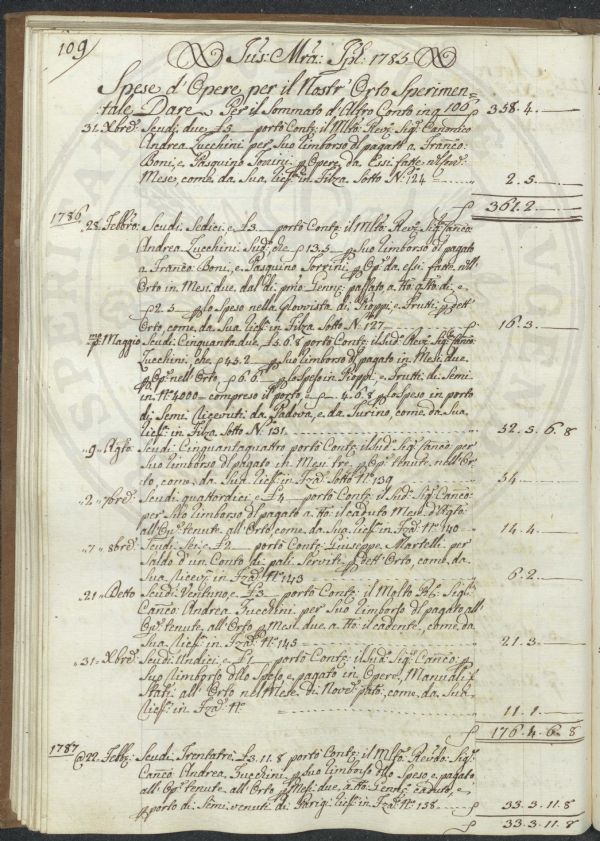 109
Jus: Mra: Jpl: 1785
Spese d'Opere per il Nostr' Orto Sperimen=
tale Dare Per il Sommato d'Altro Conto in q 100 358.4.
31. Xbre: Scudi due £5 portò Contj: il Mlto: Revd: Sigr: Canonico
Andrea Zucchini per Suo rimborso di pagatj a Franco:
Boni, e Pasquino Tonini p Opere da Essi fatte nel sud:
Mese, come da Sua in Filza Sotto No: 124 2.5.
361.2
1786
28. Febbro: Scudi Sedici, e £3 portò Contj: il Mlto: Revd: Sigr: Canco:
Andrea Zucchini Sud: che 13.5 p Suo rimborso di pagato
a Franco: Boni, e Pasquino Torrini p Op: da essi fatte nell'
Orto in Mesi due, dal di: primo Genno: passato a tto: di, e
2.5 p lo Speso nella Provvista di Pioppi, e Frutti p dett:
Orto, come da Sua in Filza Sotto No: 127 16.3
Maggio Scudi Cinquanta due, £5.6.8 portò Contj: il Sud: Revd: Sigr: Canco:
Zucchini, che 43.2 p Suo rimborso di pagato in Mesi due
p Op: nell'Orto, 6.6 p lo Speso in Pioppi e Frutti di Semi
in No: 4000 compreso il porto, e 4.6.8 p lo Speso in porto
di Semi ricevuti da Padova, e da Turino, come da Sua
in Filza Sotto No: 131 52.5.6.8
9. Agto: Scudi Cinquantaquattro portò Contj: il Sud: Sigr: Canco: per
Suo rimborso di pagato in Mesi tre, p Op: tenute nell'Or=
to, come da Sua in Filza Sotto No: 139 54
2. 7bre: Scudi quattordici, e £4 portò Contj: il Sud: Sigr: Canco:
per Suo rimborso di pagato a tto: il caduto Mese d'Agto:
all'Op: tenute all'Orto, come da Sua in Fza: No: 140 14.4
7. 8bre: Scudi Sei, e £2 portò Contj: Giuseppe Martelli per
Saldo d'un Conto di pali Serviti p dett: Orto, come da
Sua ricevj: in Fza: No: 143 6.2
21. Detto Scudi Ventuno, e £3 portò Contj: il Molto Rdo: Sigr:
Canco: Andrea Zucchini per Suo rimborso di pagato all'
Op: tenute all'Orto p Mesi due a tto: il cadente, come da
Sua in Fza: No: 145 21.3
31. Xbre: Scudi Undici, e £1 portò Contj: il Sud: Sigr: Canco: p
Suo rimborso dello Speso, e pagato in Opere, Manuali
Stati all'Orto nel Mese di Nove: pato:, come da Sua
in Fza: No: 11.1
176.4.6.8
1787
22. Febbo: Scudi Trentatrè £3.11.8 portò Contj: il Mlto: Revdo: Sigr:
Canco: Andrea Zucchini p Suo rimborso dello Speso, e pagato
all'Op: tenute all'Orto p Mesi due, a tto: Genno: caduto, e
p porto di Semi venuti di Parigi in Fza: No: 158 33.3.11.8
33.3.11.8